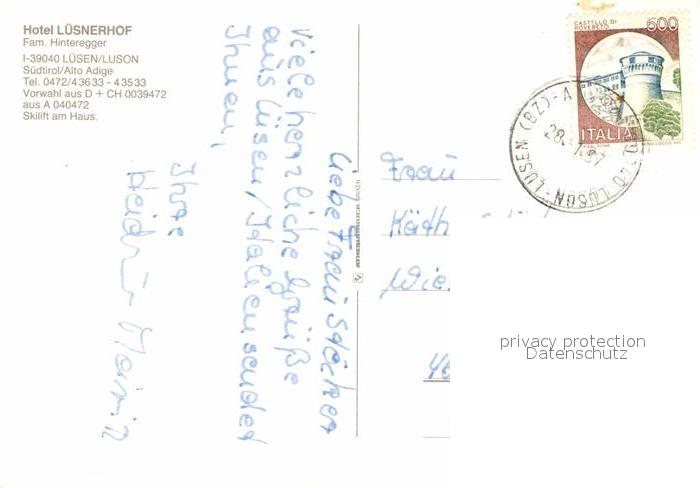 Hotel LÜSNERHOF
Fam. Hinteregger
I-39040 LÜSEN/LUSON
Südtirol/Alto Adige
Tel. 0472/43633 - 43533
Vorwahl aus D + CH 0039472
aus A 040472
Skilift am Haus.
Liebe Frau Stecher
Viele herzliche Grüße
aus Lüsen/Italien sendet
Ihnen,
Ihre
Heidi
Frau
Käth
Wie
CASTELLO DI
ROVERETO
500
ITALIA
LUSON-LÜSEN (BZ)-A
privacy protection
Datenschutz